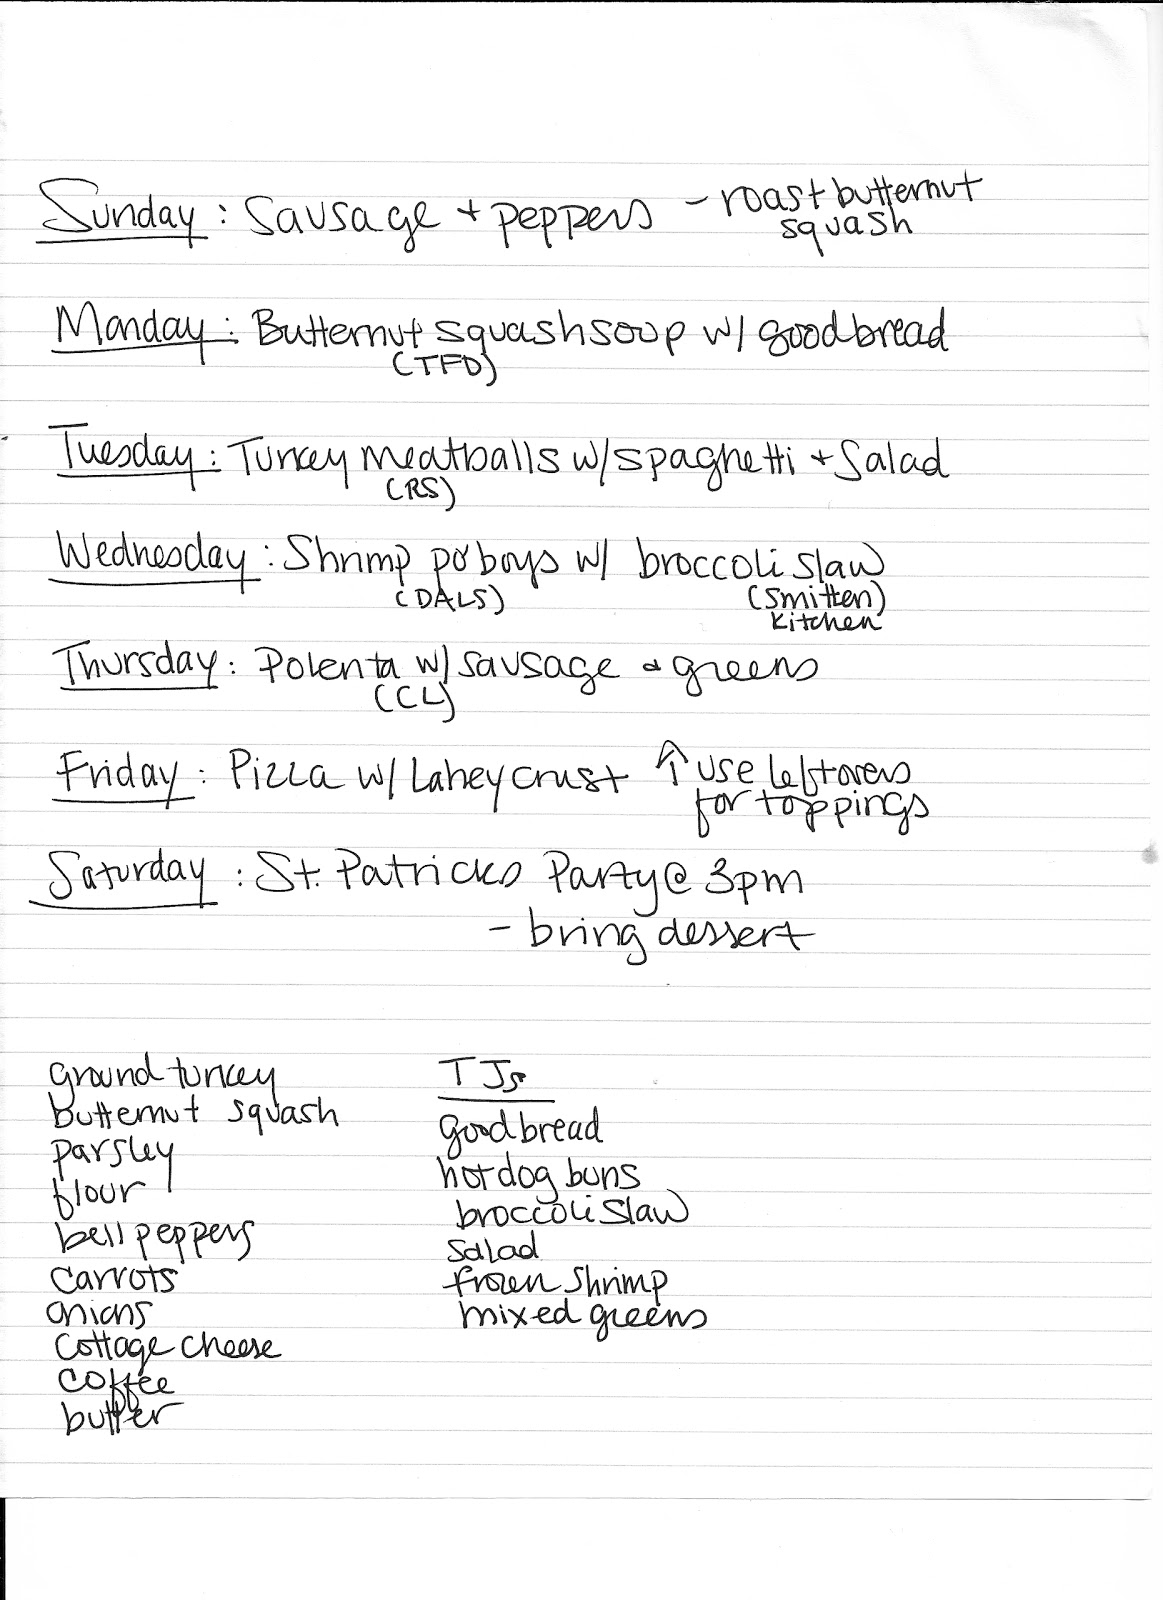 Sunday: Sausage + peppers - roast butternut
squash
Monday: Butternut squash soup w/ good bread
(TFD)
Tuesday: Turkey meatballs w/ spaghetti + Salad
(RS)
Wednesday: Shrimp po'boys w/ broccoli slaw
(DALS) (Smitten)
Kitchen
Thursday: Polenta w/ sausage + greens
(CL)
Friday: Pizza w/ Lahey crust ↑ use leftovers
for toppings
Saturday: St. Patricks Party @ 3pm
- bring dessert
ground turkey
butternut squash
parsley
flour
bell peppers
carrots
onions
cottage cheese
coffee
butter
TJs
good bread
hot dog buns
broccoli slaw
salad
frozen shrimp
mixed greens